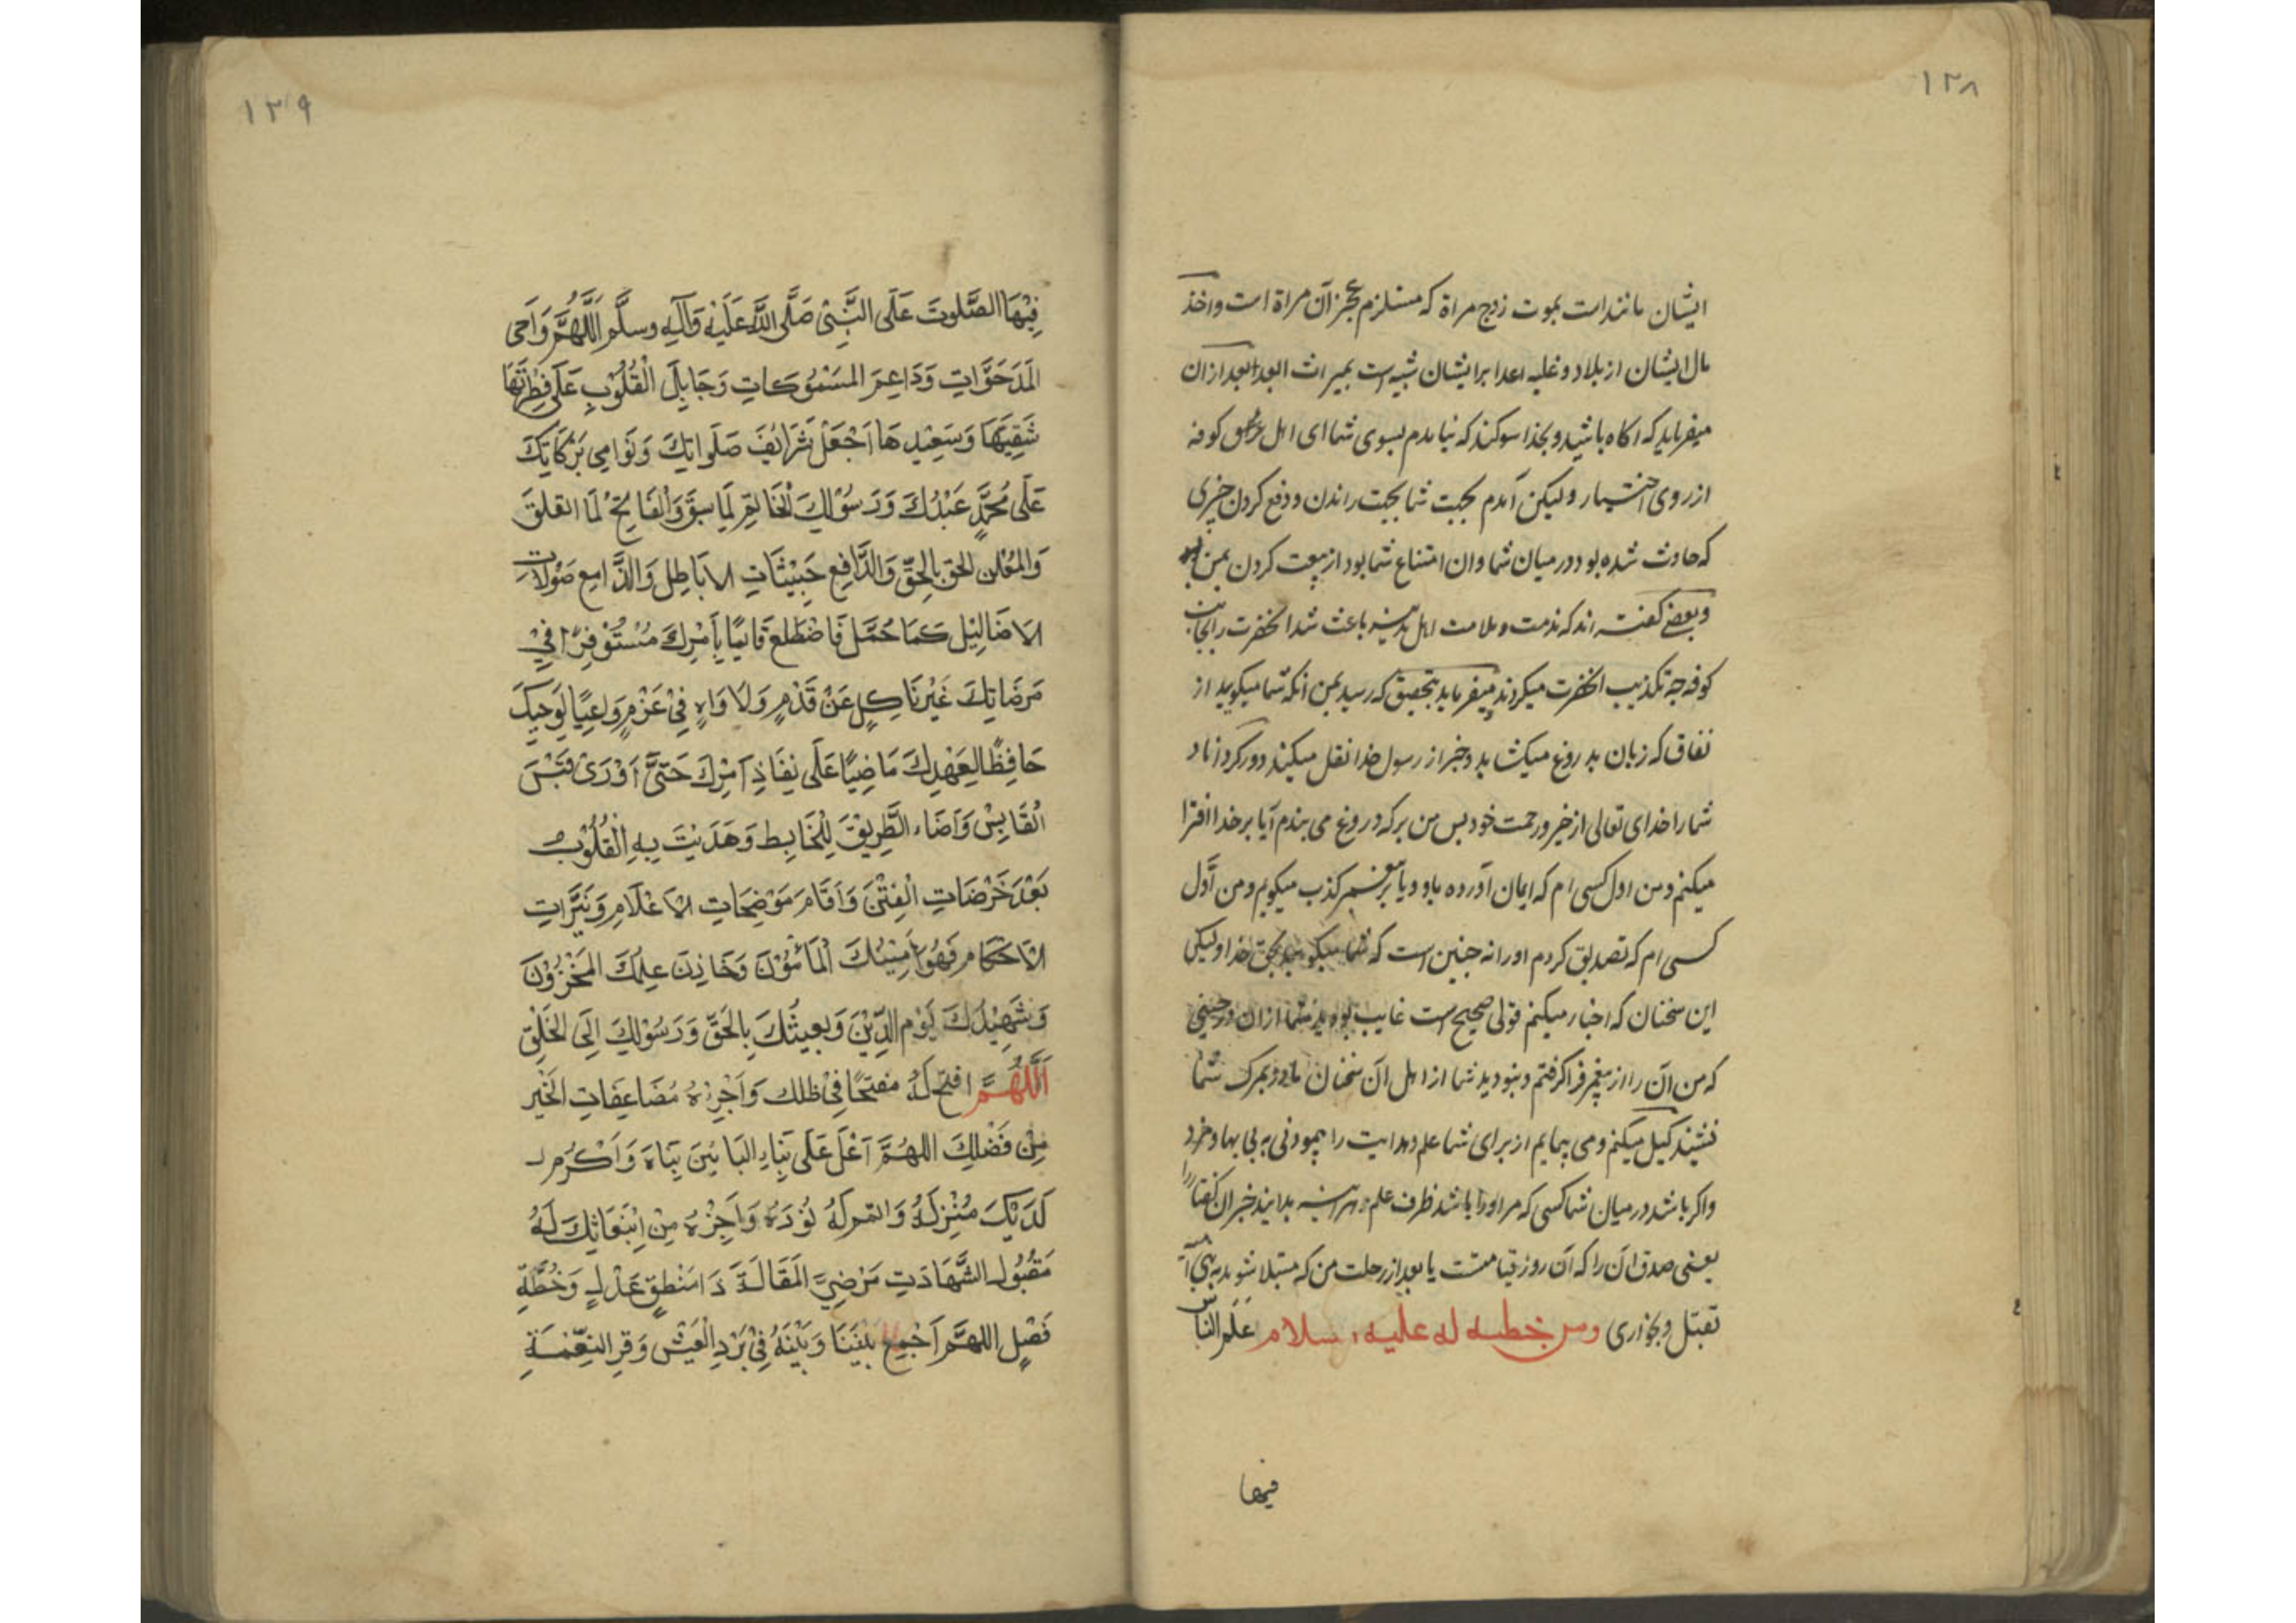 ١٣٨
ایشان مانند است بموت زوج مراة که مستلزم عجز آن مراة است واخذ
مال ایشان از بلاد و غلبه اعدا بر ایشان شبیه است بمیراث ابعد بعد ازان
میفرماید که اکاه باشید و بخدا سوکند که نیامدم بسوی شما ای اهل عراق کوفه
از روی اختیار ولیکن آمدم بجهت شما بجهت راندن و دفع کردن چیزی
که حادث شده بود در میان شما وان امتناع شما بود از بیعت کردن بمن
وبعضی کفته اند که مذمت و ملامت اهل مدینه باعث شد انحضرت را بجانب
کوفه چه تکذیب انحضرت میکردند میفرماید بتحقیق که رسید بمن انکه شما میکویید از
نفاق که زبان بدروغ میکشاید وخبر از رسول خدا نقل میکند دور کرداناد
شما را خدای تعالی از خیر و رحمت خود پس من بر که دروغ می بندم آیا بر خدا افترا
میکنم ومن اول کسی ام که ایمان آورده باو ویا بر پیغمبر کذب میکویم ومن اوّل
کسی ام که تصدیق کردم او را نه چنین است که شما میکویید بحق خدا ولیکن
این سخنان که اخبار میکنم قولی صحیح است غایب بوده اید شما ازان در حینی
که من آن را از پیغمبر فرا کرفتم و نبودید شما از اهل آن سخنان مادر بمرک شما
نشیند کیل میکنم ومی پیمایم از برای شما علم وهدایت را پیمودنی به بی بها ومزد
واکر باشد در میان شما کسی که مر او را باشد ظرف علم هر اینه بدانید خبر ان کفتار را
یعنی صدق ان را که آن روز قیامتست یا بعد از رحلت من که مبتلا شوید به بنی امیه
بقتل و بخواری ومن خطبه له علیه السلام عَلَّمَ النّاسَ
فیها
١٣٩
فِيْهَا الصَّلوتَ عَلَى النَّبِىْ صَلَّى اللّٰهُ عَلَيْهِ وَآلِهِ وسلَّم اَللّٰهُمَّ دَاحِى
المَدحَوَّاتِ وَدَاعِمَ المَسْمُوكاتِ وَجَابِلَ الْقُلُوْبِ عَلَى فِطْرَتِهَا
شَقِيِّهَا وَسَعِيْدِهَا اَجْعَلْ شَرَائِفَ صَلَوَاتِكَ وَنَوَامِى بَرَكَاتِكَ
عَلَى مُحَمَّدٍ عَبْدُكَ وَرَسُوْلِكَ الْخَاتِمِ لِمَا سَبَقَ وَالْفَاتِحُ لِمَا انغلق
وَالمُعْلِنِ الْحَقَّ بِالْحَقِّ وَالدَّافِعِ جَيْشَاتِ الاَبَاطِلِ وَالدَّامِعِ صَوْلَاتِ
الاَضَالِيْلِ كَمَا حُمِّلَ فَاضْطَلَعَ قَائِمًا بِأَمْرِكَ مُسْتَوْفِزًا فِيْ
مَرضَاتِكَ غَيْرَ نَاكِلٍ عَنْ قَدْمٍ وَلَا وَاهٍ فِىْ عَزْمٍ وَاعِيًا لِوَحْيِكَ
حَافِظًا لِعَهْدِكَ مَاضِيًا عَلَى نِفَاذِ اَمْرِكَ حَتَّى اَوْرَىٰ قَبَسَ
الْقَابِسْ وَاَضَاء الطَّرِيْقَ لِلْخَابِطِ وَهَدَيْتَ بِهِ الْقُلُوْبُ
بَعْدَ خَوْضَاتِ الْفِتَنَ وَاَقَامَ مَوْضِحَاتِ الاَعْلَامِ وَنَيِّرَاتِ
الاَحْكَامِ فَهُوَ اَمِيْنُكَ الْمَأمُوْنَ وَخَازِنَ عِلمِكَ المَخْزُوْنَ
وَشَهِيْدُكَ يَوْمَ الدِّيْنَ وَبعِيثُكَ بِالحَقِّ وَرَسُوْلِكَ اِلَى الخَلْقِ
اَللّٰهُمَّ افتح لَهُ مفتحًا فِىْ ظلك وَاَجْزِهِ مُضَاعِفَاتِ الْخَيْر
مِنْ فَضْلِكَ اللهُمَّ اَعْلِ عَلَى بِنَاءِ البَانِيْنَ بِنَاءَهُ وَاَكْرِمْ
لَدَيْكَ مُنْزِلَهُ وَاتمم لَهُ نُوْرَهُ وَاَجِزْهُ مِنَ اِبْتِعَاثِكَ لَهُ
مَقْبُوْلَ الشَّهَادَتِ مَرْضِيَّ المَقَالَةَ ذَا مَنْطِقٍ عَدْلٍ وَخُطَّةٍ
فَصْلٍ اللهُمَّ اَجْمِعْ بَيْنَنَا وَبَيْنَهُ فِىْ بَرْدِ الْعَيْشِ وَقرِ النِعْمَةِ